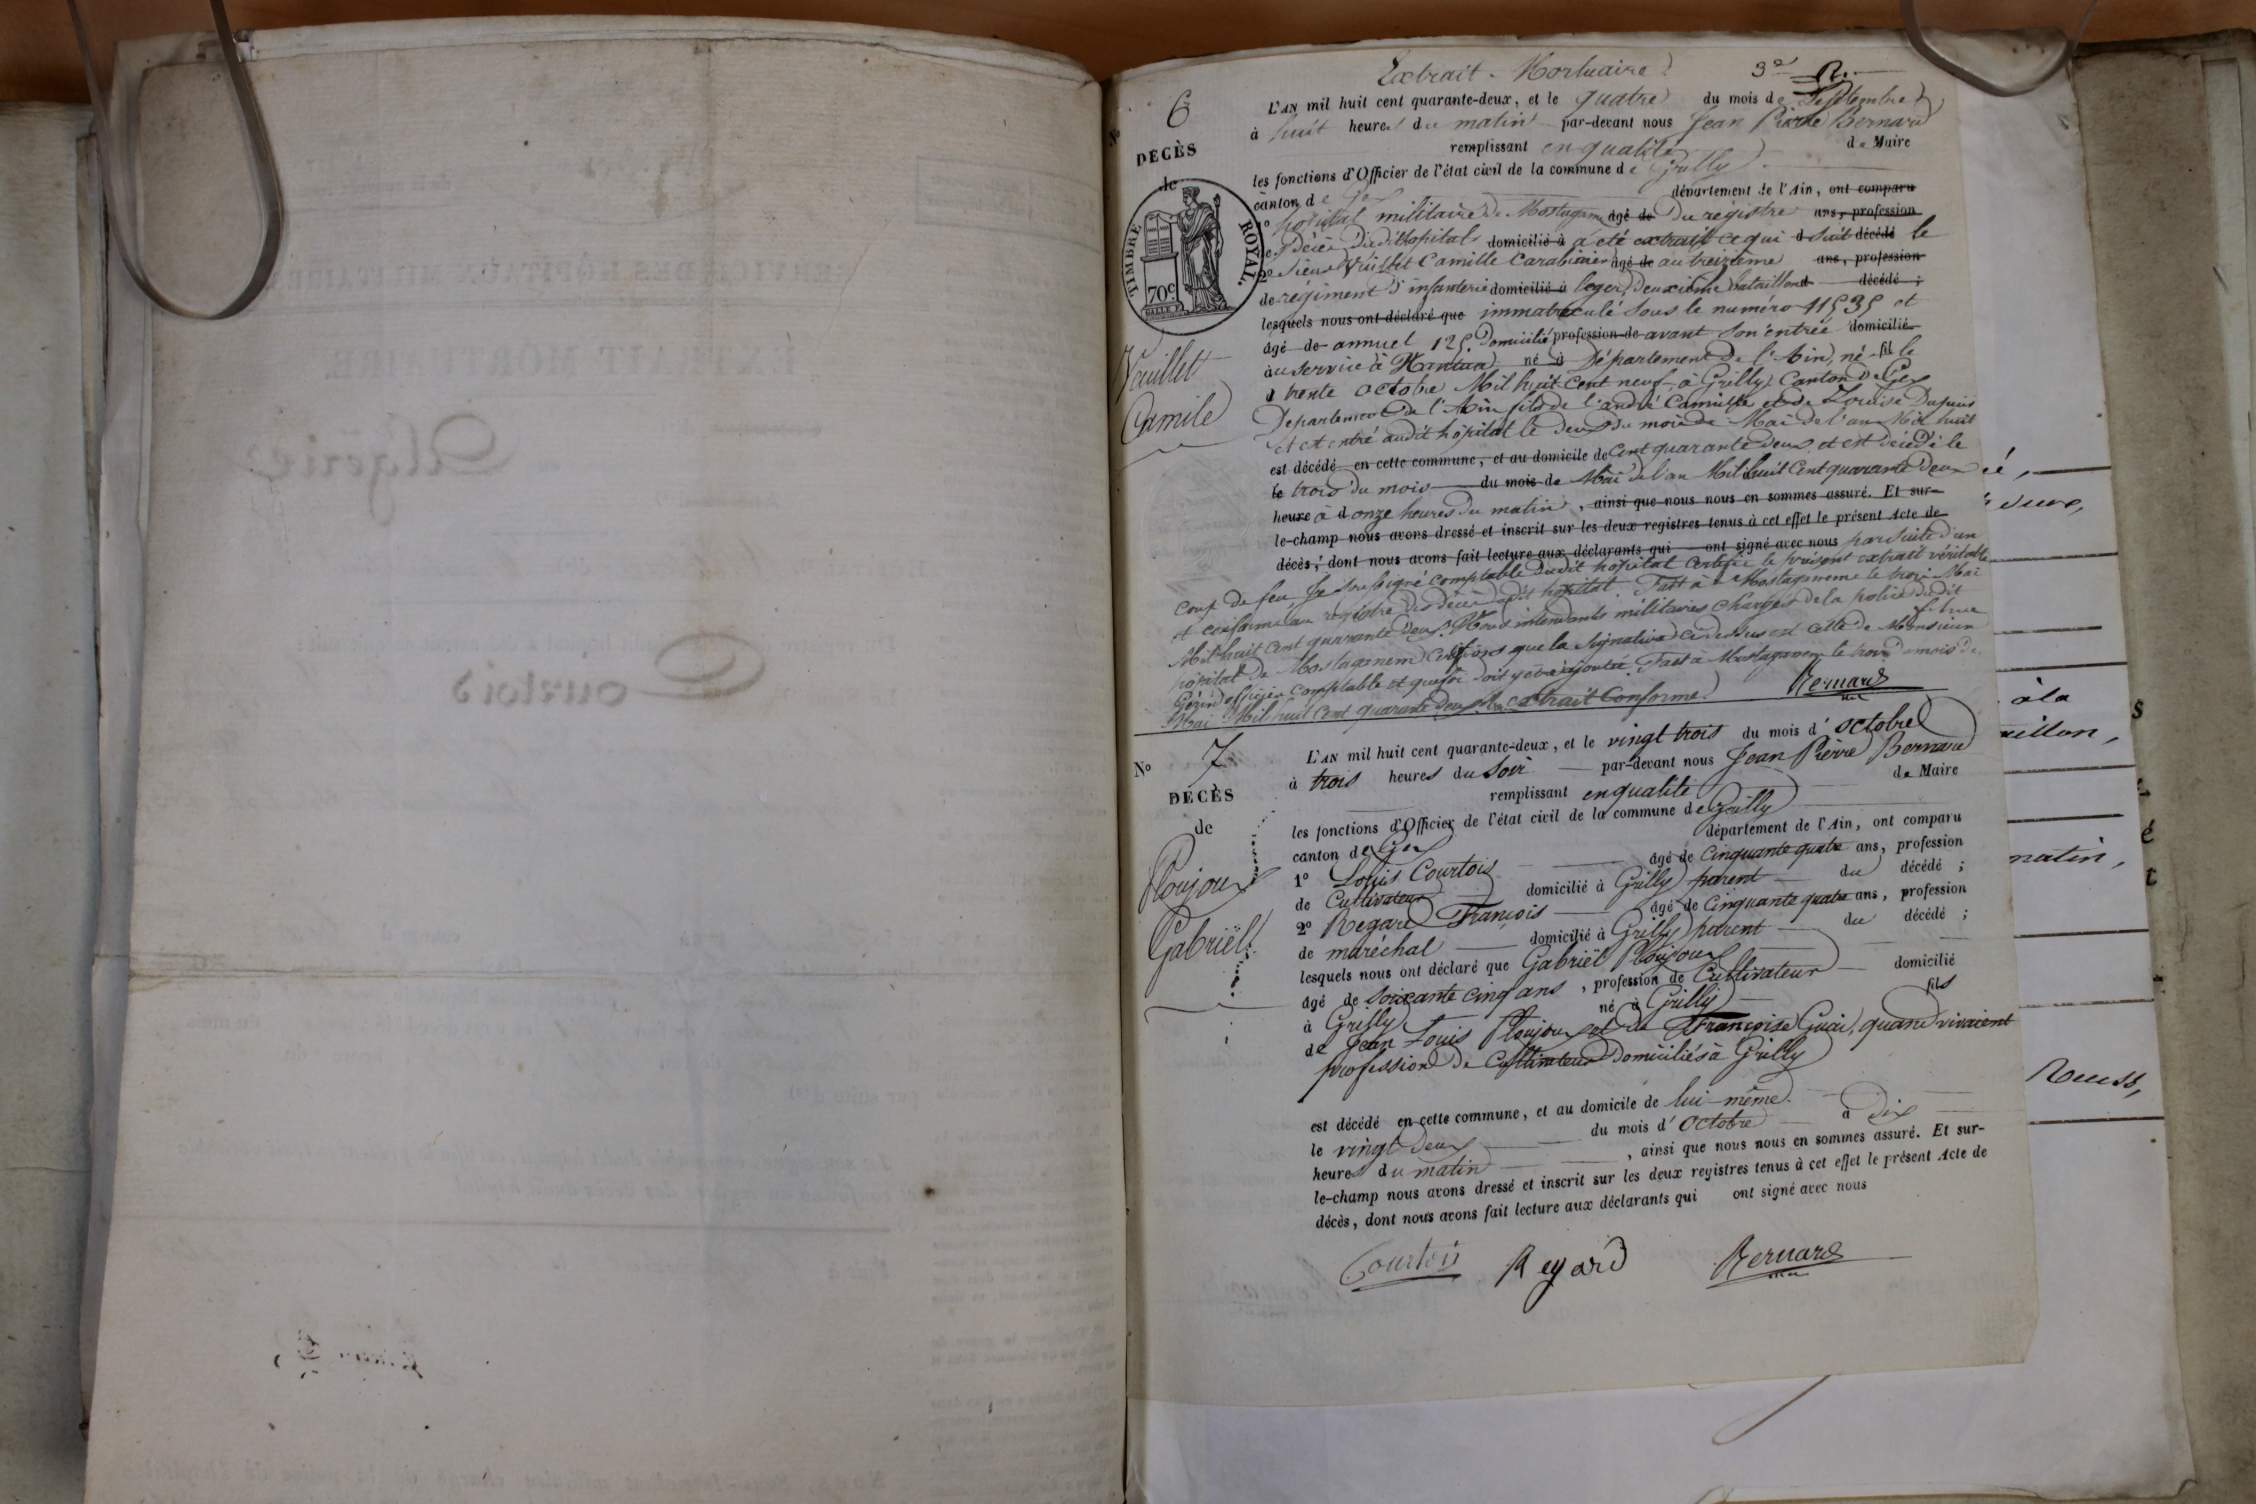 Extrait Mortuaire 3e R.
N° 6
DÉCÈS
de
TIMBRE ROYAL.
70c
Vuillet
Camile
L'AN mil huit cent quarante-deux, et le quatre du mois de Septembre
à huit heures du matin par-devant nous Jean Pierre Bernard
remplissant en qualité de Maire
les fonctions d'Officier de l'état civil de la commune de Grilly
canton de Gex département de l'Ain, ont comparu
1° hopital militaire de Mostaganem âgé de Du régistre ans, profession
de Décès dudit hopital domicilié à a été extrait ce qui d suit décédé le
2° Sieur Vuillet Camille Carabinier âgé de au treizième ans, profession
de régiment d'infanterie domicilié à leger, deuxième bataillon d décédé ;
lesquels nous ont déclaré que immatriculé sous le numéro 11535 et
âgé de annuel 125. Domicilié profession de avant son entrée domicilié
au service à Nantua né à Département de l'Ain, né fil le
d trente octobre Mil huit cent neuf à Grilly Canton de Gex
Departement de l'Ain fils de l'andré Camille et de Louise Dupuis
et est entré audit hôpital le deux du mois de Mai de l'an Mil huit
est décédé en cette commune, et au domicile de Cent quarante deux et est décédé le
le trois du mois du mois de Mai de l'an Mil huit Cent quarante deux
heure à d onze heures du matin, ainsi que nous nous en sommes assuré. Et sur-
le-champ nous avons dressé et inscrit sur les deux registres tenus à cet effet le présent Acte de
décès, dont nous avons fait lecture aux déclarants qui ont signé avec nous par suite d'un
coup de feu Je soussigné comptable dudit hôpital certifie le présent extrait véritable
et conforme au régistre des décès dudit hôpital. Fait à Mostaganeme le trois Mai
Mil huit Cent quarante deux. Nous intendants militaires chargés de la police dudit
hôpital de Mostaganem certifions que la signature ci dessus est celle de Monsieur
officier comptable et que foi doit y être ajoutée. Fait à Mostaganem le trois mois de
Mai Mil huit Cent quarante deux. extrait Conforme. Bernard
N° 7
DÉCÈS
de
Ploujoux
Gabriël
L'AN mil huit cent quarante-deux, et le vingt trois du mois d'octobre
à trois heures du soir par-devant nous Jean Pierre Bernard
remplissant en qualité de Maire
les fonctions d'Officier de l'état civil de la commune de Grilly
canton de Gex département de l'Ain, ont comparu
1° Louis Courtois âgé de Cinquante quatre ans, profession
de Cultivateur domicilié à Grilly parent du décédé ;
2° Regard François âgé de Cinquante quatre ans, profession
de maréchal domicilié à Grilly parent du décédé ;
lesquels nous ont déclaré que Gabriël Ploujoux
âgé de soixante cinq ans, profession de Cultivateur domicilié
à Grilly né à Grilly fils
de Jean Louis Ploujoux et de Françoise Guai, quand vivaient
profession de Cultivateur Domiciliés à Grilly
est décédé en cette commune, et au domicile de lui-même
le vingt Deux du mois d'octobre à dix
heures du matin, ainsi que nous nous en sommes assuré. Et sur-
le-champ nous avons dressé et inscrit sur les deux registres tenus à cet effet le présent Acte de
décès, dont nous avons fait lecture aux déclarants qui ont signé avec nous
Courtois Regard Bernard
à la
matin,